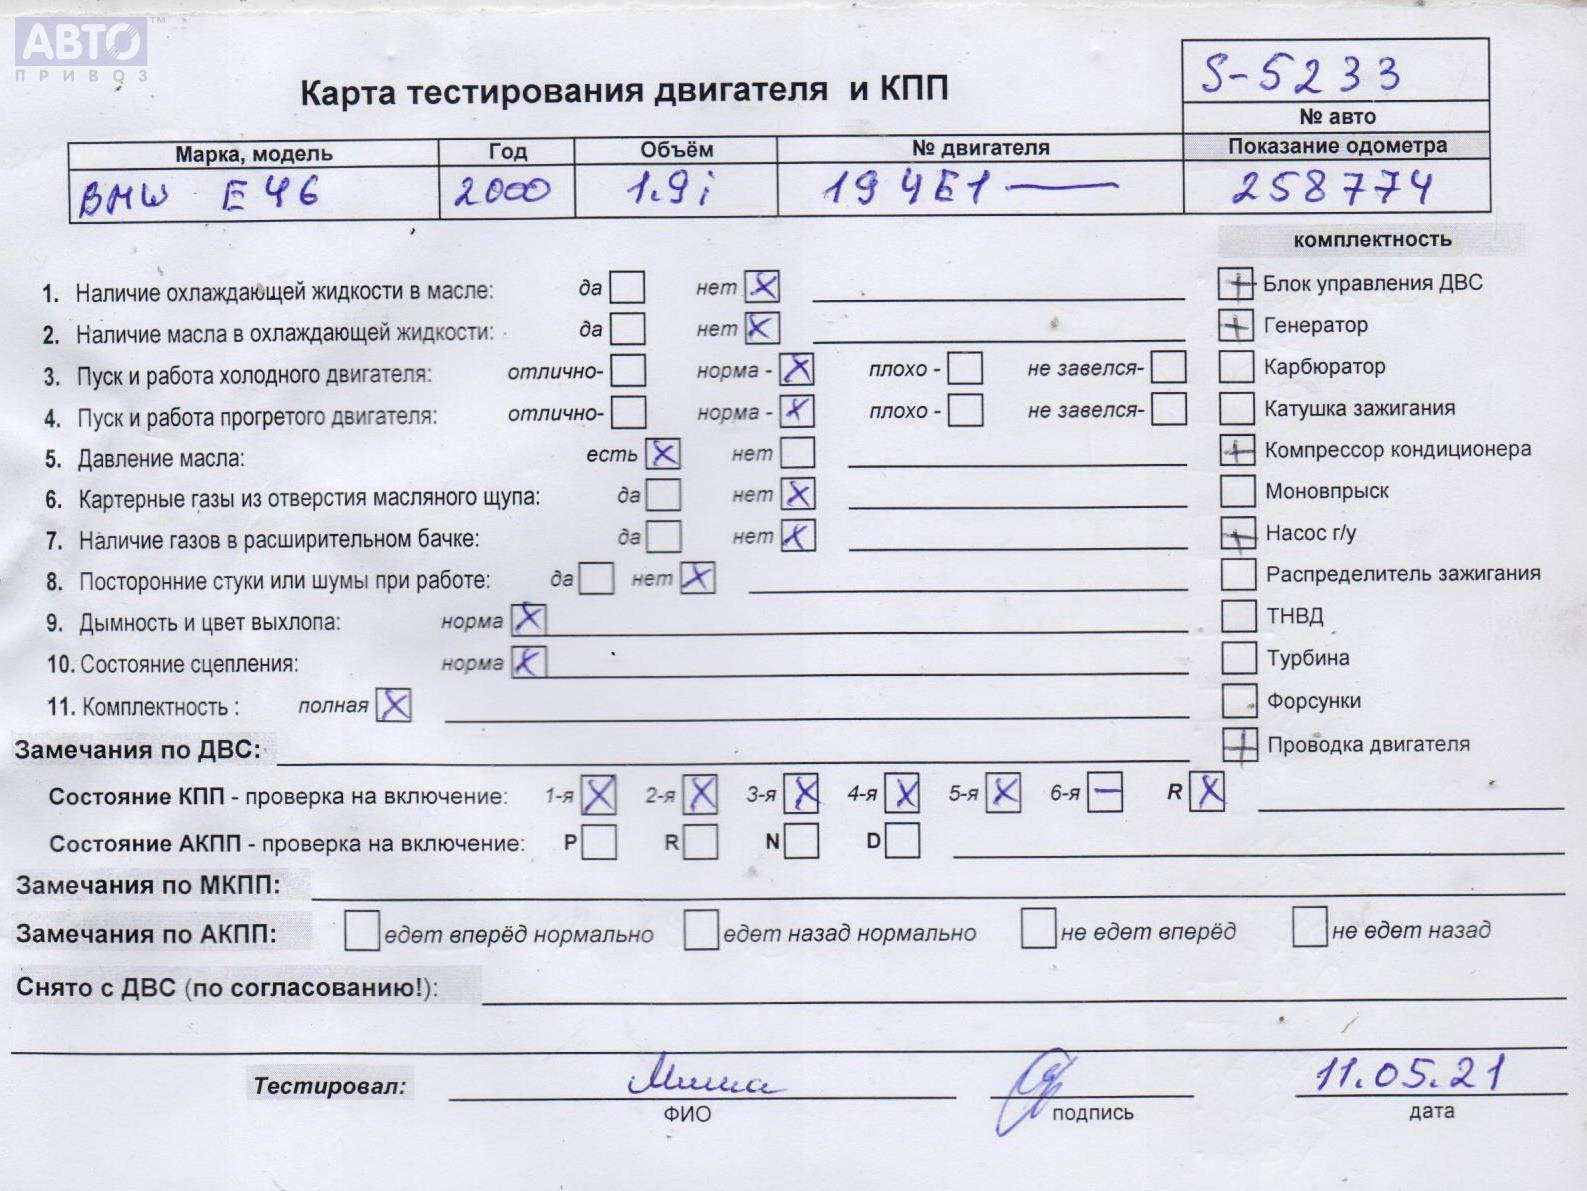 АВТО™
ПРИВОЗ
Карта тестирования двигателя и КПП
S-5233
№ авто
Марка, модель Год Объём № двигателя Показание одометра
BMW E46 2000 1.9i 194E1 — 258774
комплектность
1. Наличие охлаждающей жидкости в масле: да нет X
Блок управления ДВС
2. Наличие масла в охлаждающей жидкости: да нет X
Генератор
3. Пуск и работа холодного двигателя: отлично- норма - X плохо - не завелся-
Карбюратор
4. Пуск и работа прогретого двигателя: отлично- норма - X плохо - не завелся-
Катушка зажигания
5. Давление масла: есть X нет
Компрессор кондиционера
6. Картерные газы из отверстия масляного щупа: да нет X
Моновпрыск
7. Наличие газов в расширительном бачке: да нет X
Насос г/у
8. Посторонние стуки или шумы при работе: да нет X
Распределитель зажигания
9. Дымность и цвет выхлопа: норма X
ТНВД
10. Состояние сцепления: норма X
Турбина
11. Комплектность : полная X
Форсунки
Замечания по ДВС:
Проводка двигателя
Состояние КПП - проверка на включение: 1-я X 2-я X 3-я X 4-я X 5-я X 6-я — R X
Состояние АКПП - проверка на включение: P R N D
Замечания по МКПП:
Замечания по АКПП: едет вперёд нормально едет назад нормально не едет вперёд не едет назад
Снято с ДВС (по согласованию!):
Тестировал: Миша 11.05.21
ФИО подпись дата